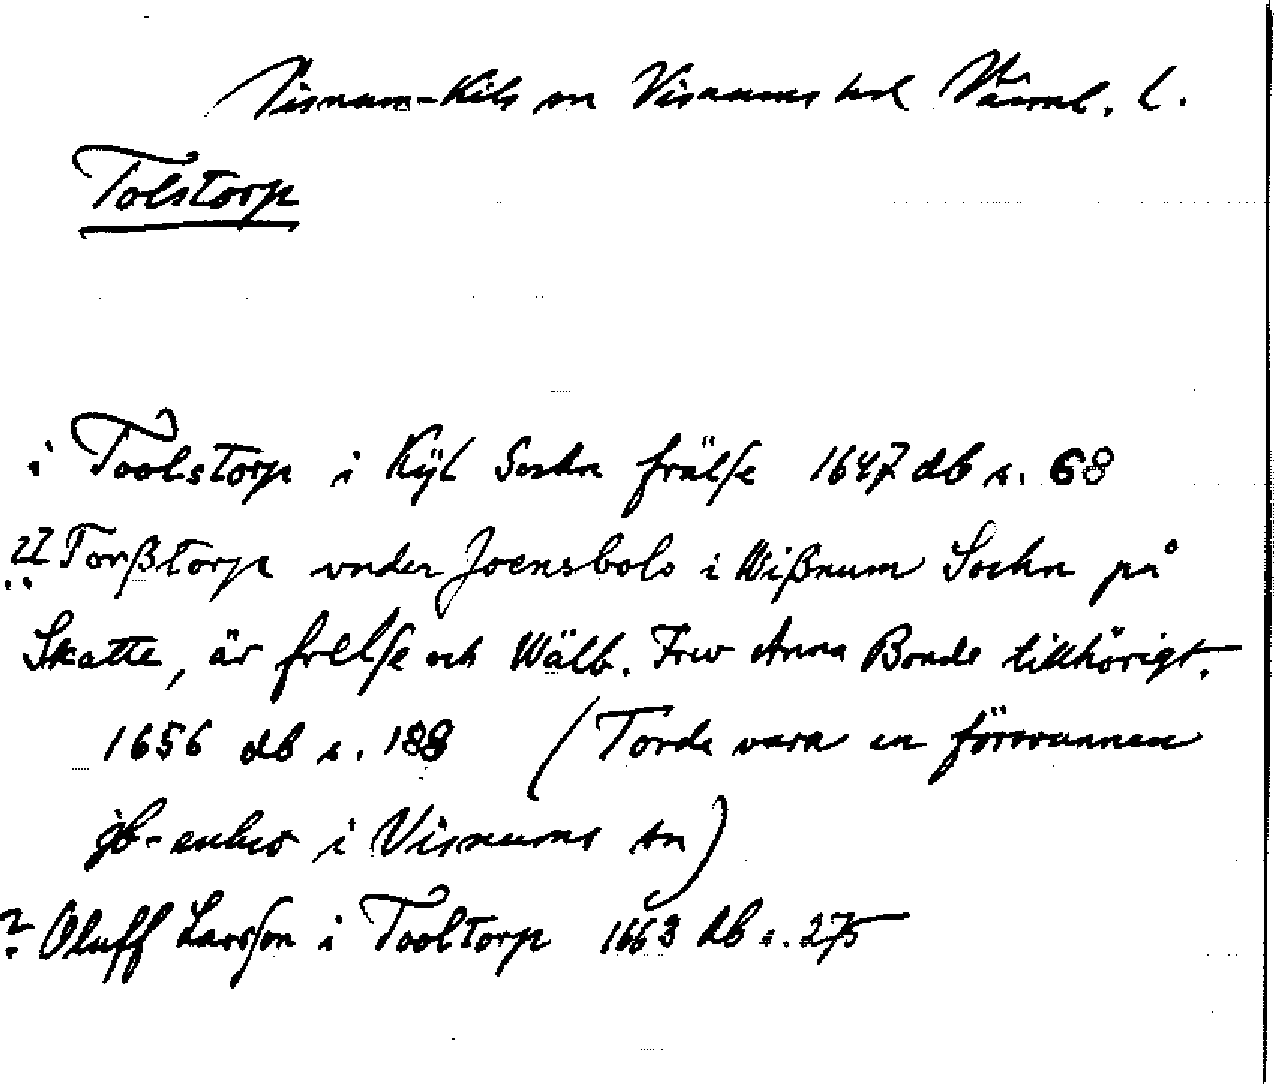 Visnum-Kils sn Visnums hd Värml. l.
Tolstorp
i Toolstorp i Kÿl Sockn frälse 1647 db s. 68
?? Torßtorp vnder Joensbols i Wißnum Sockn på
Skatte, är frelse och Wälb. Frw Anna Bonde tillhörigt.
1656 db s. 188 (Torde vara en försvunnen
jb-enhet i Visnums sn)
? Oluff Larsson i Tooltorp 1663 db s. 275